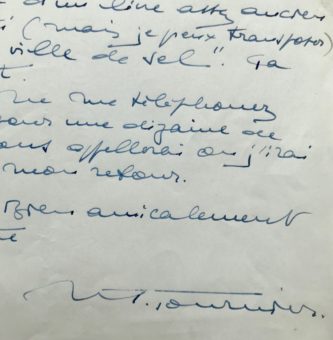 d'un livre assez ancien
(mais je peux transposer)
ville de sel". Ça
.
me téléphonez
pour une dizaine de
vous appellerai ou j'irai
mon retour.
Bien amicalement
M. Tournier.